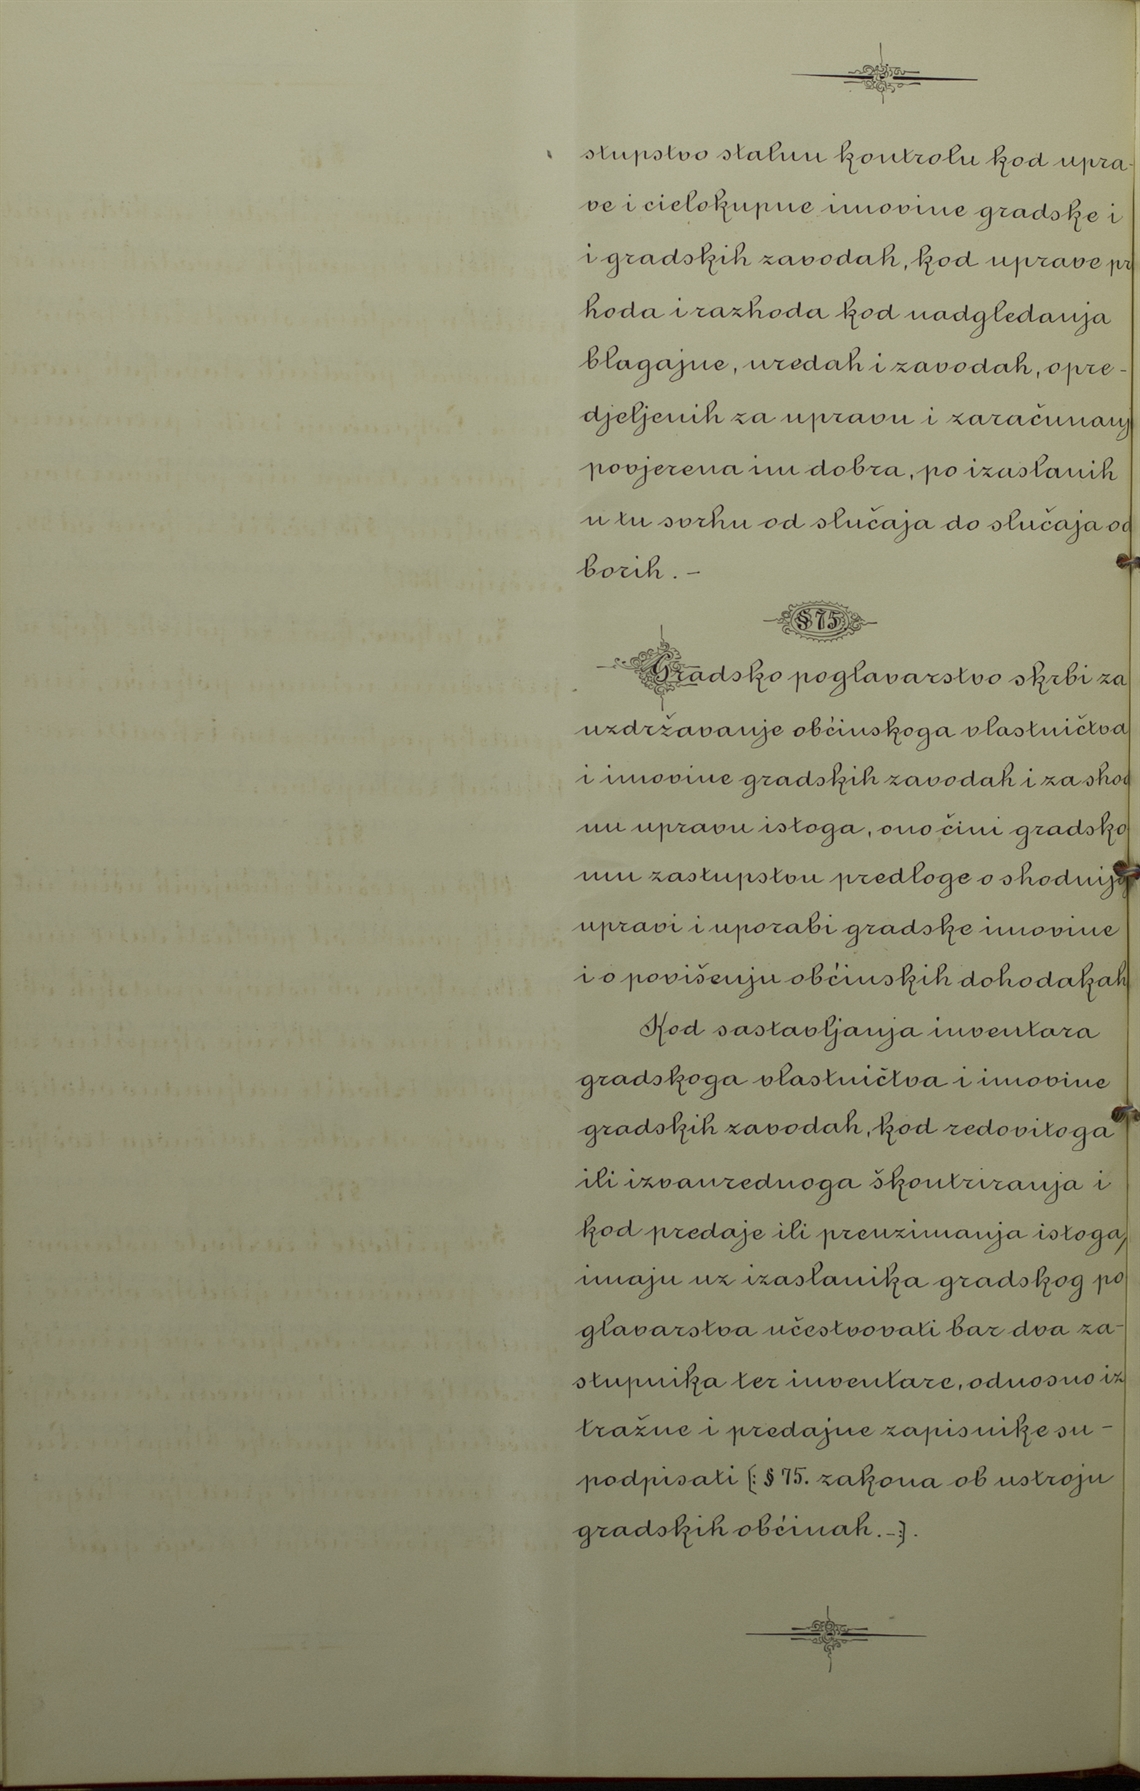 stupstvo stalnu kontrolu kod upra-
ve i cielokupne imovine gradske i
i gradskih zavodah, kod uprave pr
hoda i razhoda kod nadgledanja
blagajne, uredah i zavodah, opre-
djeljenih za upravu i zaračunanj
povjerena im dobra, po izaslanih
u tu svrhu od slučaja do slučaja od
borih. –
§ 75
Gradsko poglavarstvo skrbi za
uzdržavanje občinskoga vlastničtva
i imovine gradskih zavodah i za shod
nu upravu istoga, ono čini gradsko
mu zastupstvu predloge o shodnijoj
upravi i uporabi gradske imovine
i o povišenju občinskih dohodakah
Kod sastavljanja inventara
gradskoga vlastničtva i imovine
gradskih zavodah, kod redovitoga
ili izvanrednoga škontriranja i
kod predaje ili preuzimanja istoga,
imaju uz izaslanika gradskog po
glavarstva učestvovati bar dva za-
stupnika ter inventare, odnosno iz
tražne i predajne zapisnike su-
podpisati (: § 75. zakona ob ustroju
gradskih občinah. –:).